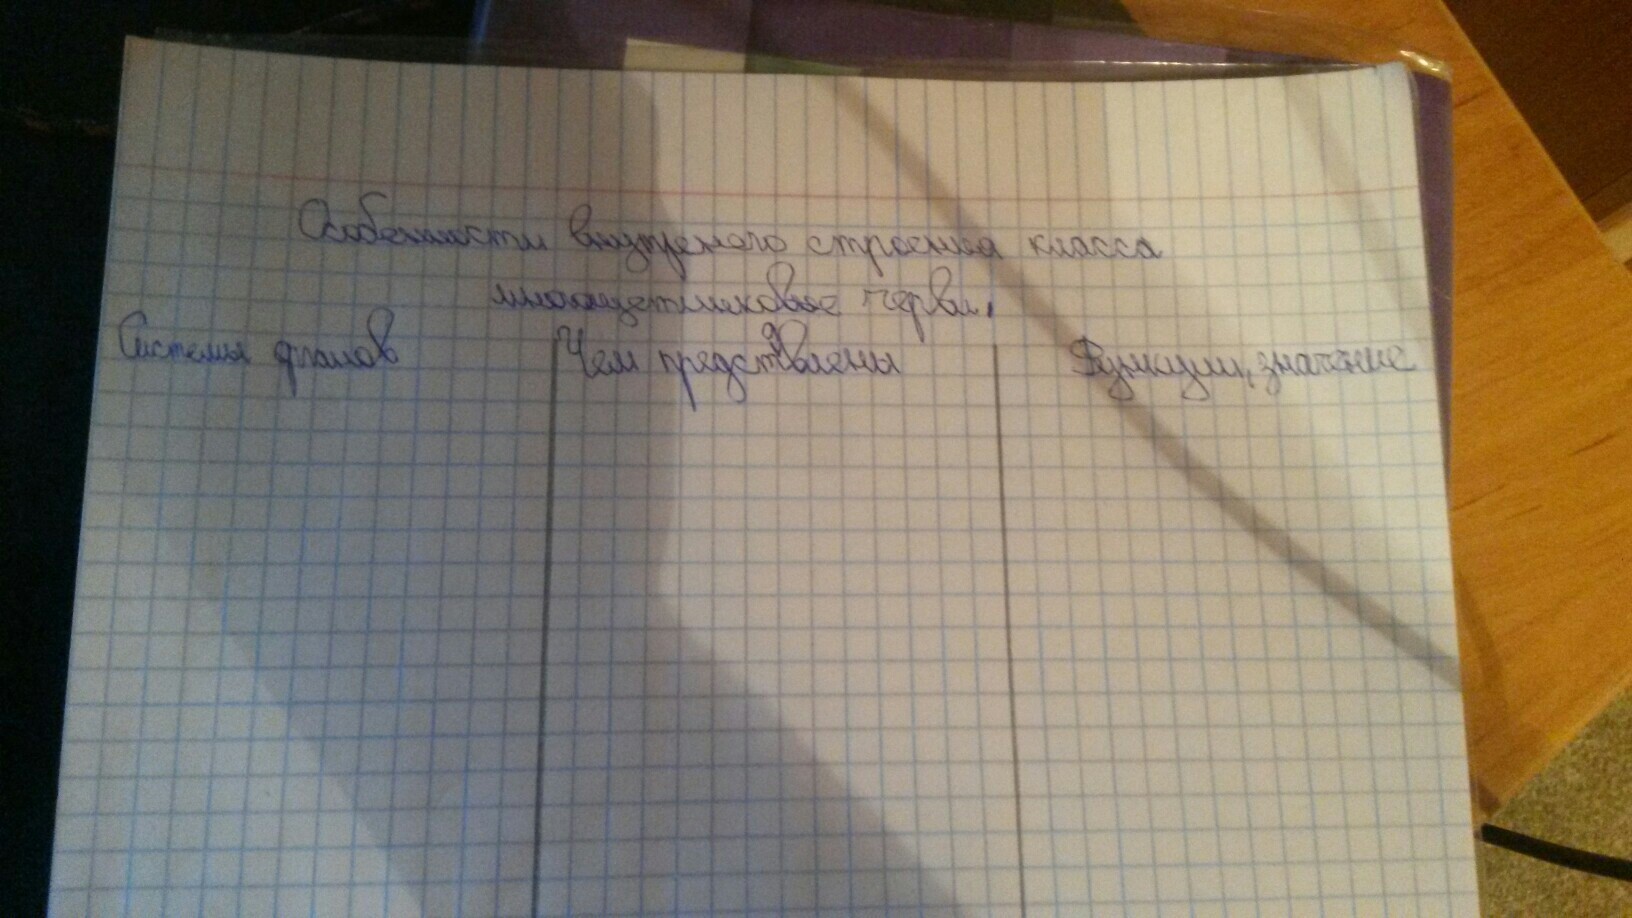 Особенности внутреного строения класса
многощетинковые черви.
Системы органов Чем представлены Функции, значение